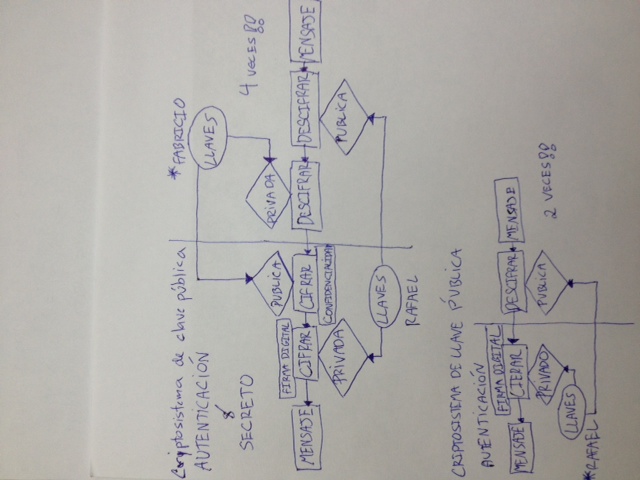 Criptosistema de clave pública
AUTENTICACIÓN
&
SECRETO
*FABRICIO
LLAVES
4 VECES!!
PUBLICA
PRIVADA
FIRMA DIGITAL
MENSAJE CIFRAR CIFRAR DESCIFRAR DESCIFRAR MENSAJE
CONFIDENCIALIDAD
PRIVADA
PUBLICA
LLAVES
RAFAEL
CRIPTOSISTEMA DE LLAVE PÚBLICA
AUTENTICACIÓN
FIRMA DIGITAL
MENSAJE CIFRAR DESCIFRAR MENSAJE
PRIVADO PUBLICA
2 VECES!!
LLAVES
*RAFAEL